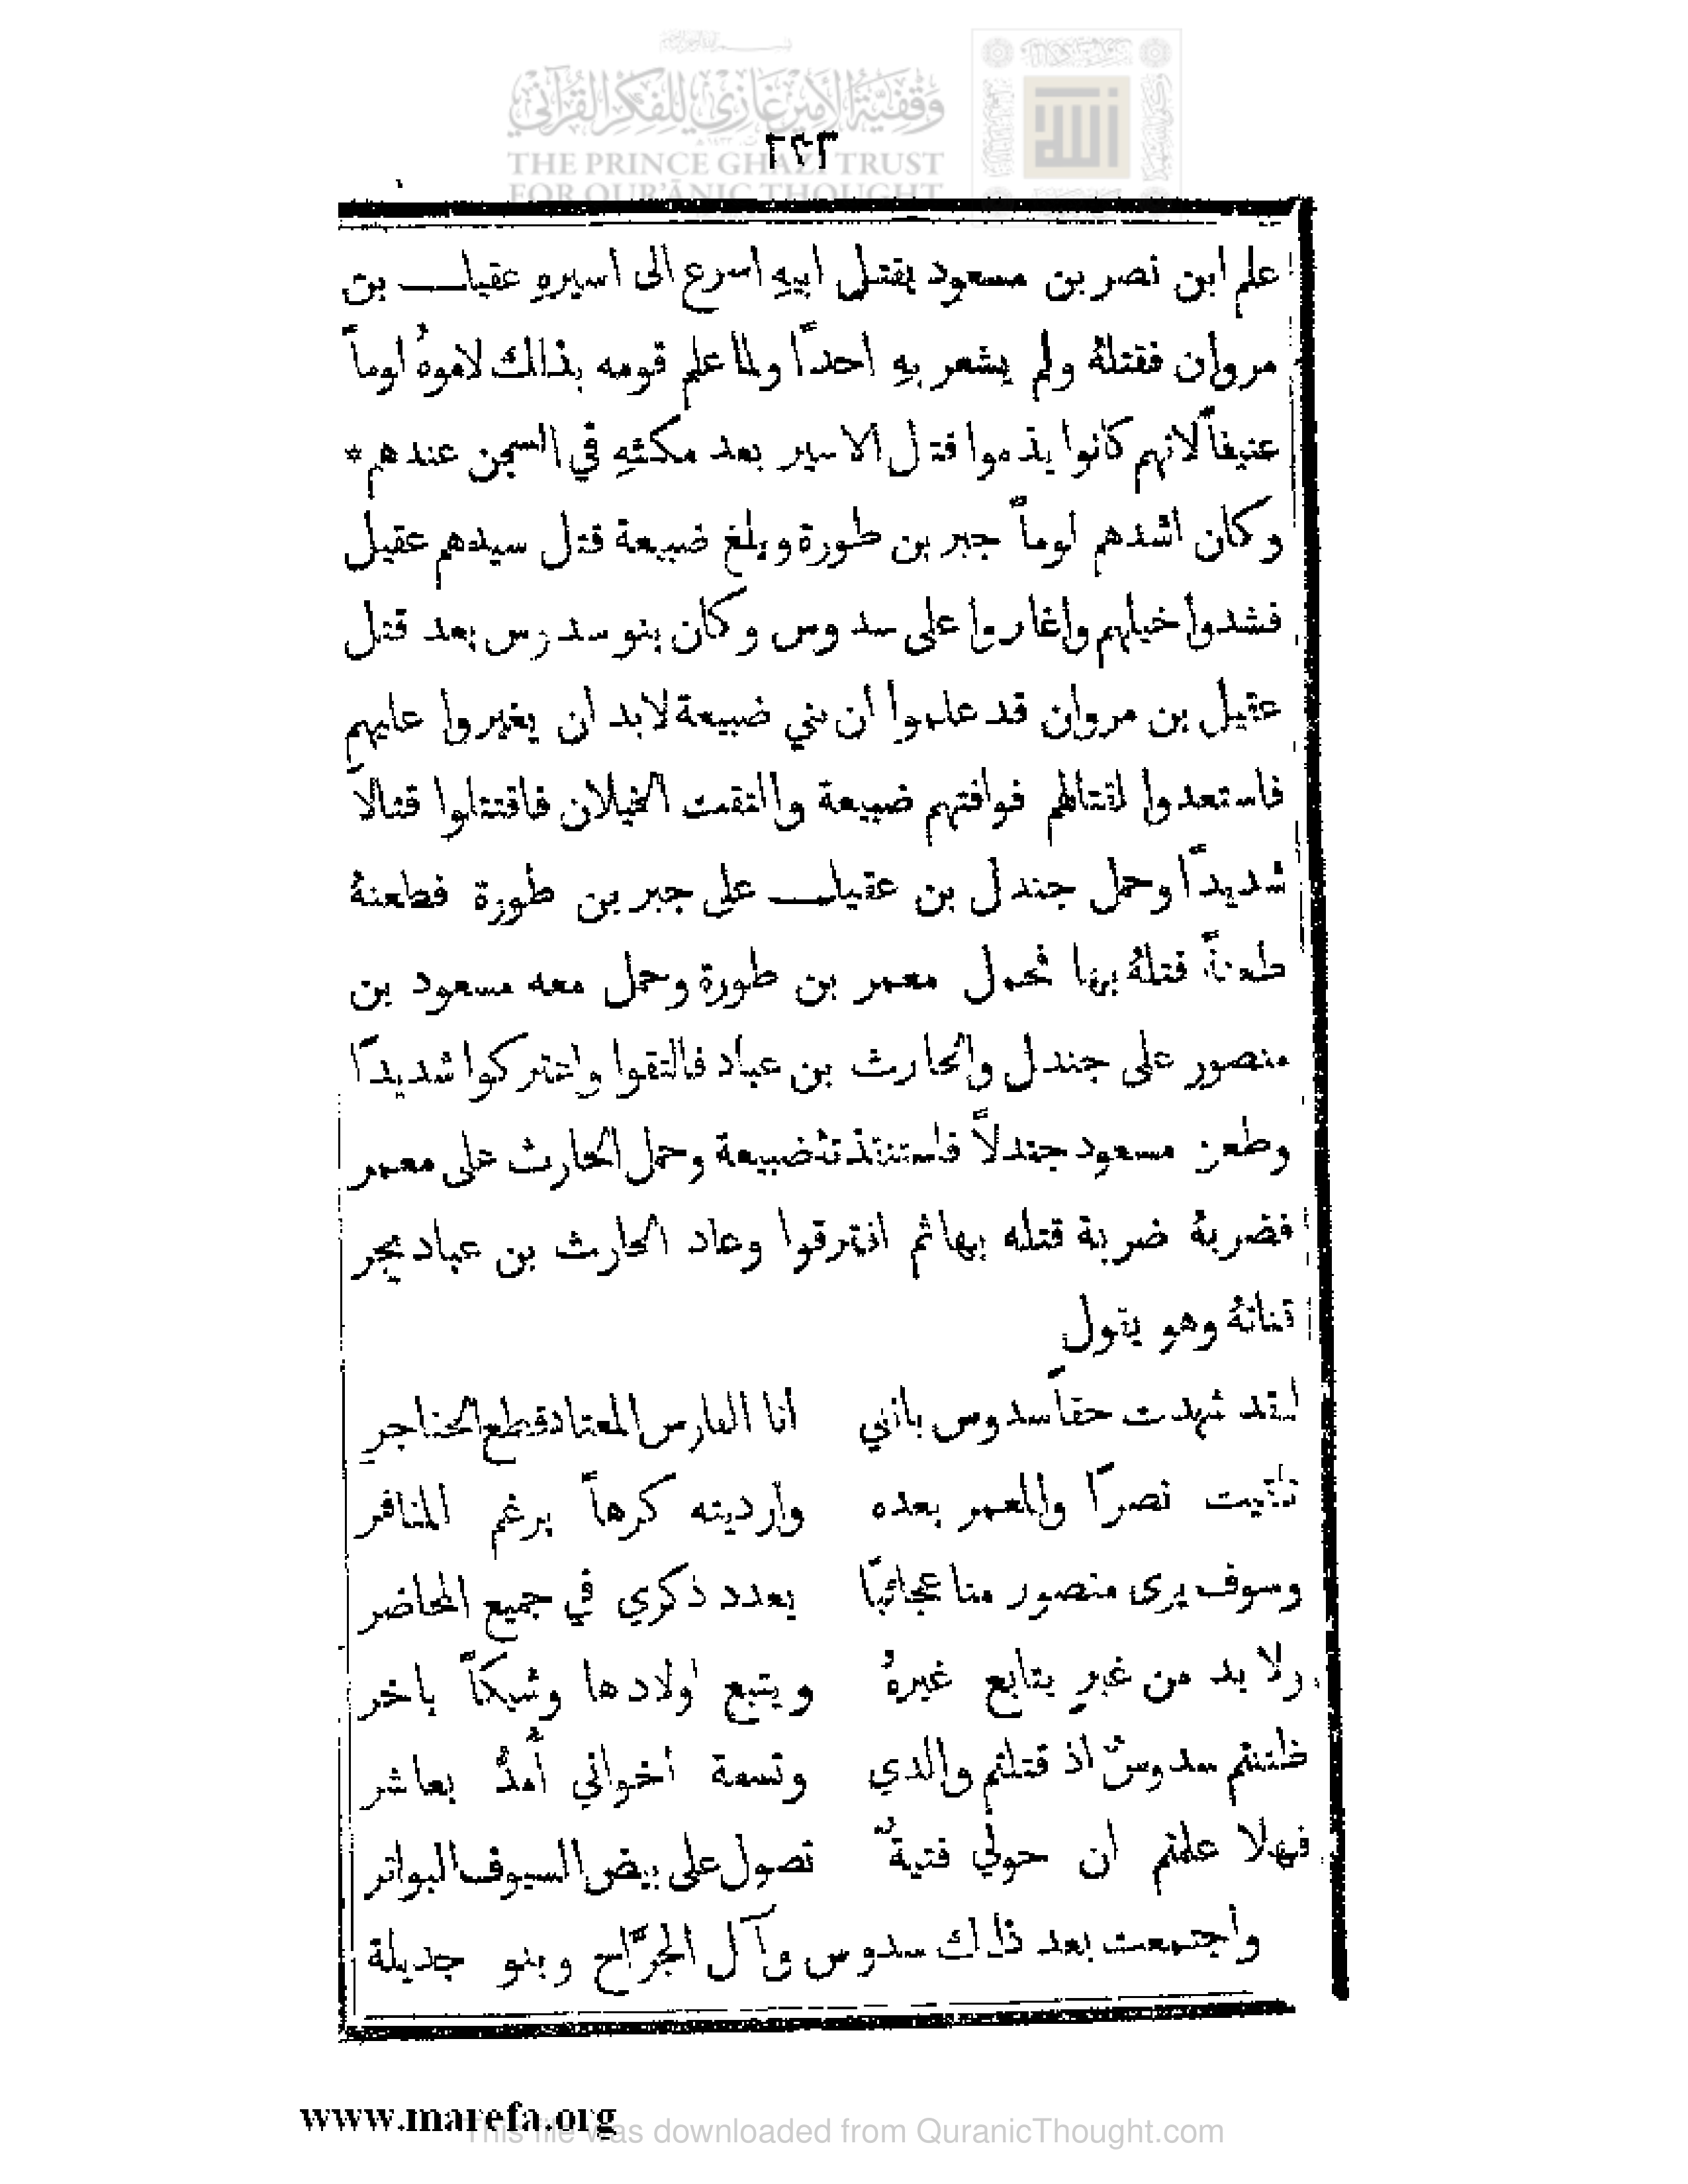 وقفية الأمير غازي للفكر القرآني
THE PRINCE GHAZI TRUST
FOR QUR'ĀNIC THOUGHT
٢٤٣
علم ابن نصر بن مسعود بقتل ابيهِ اسرع الى اسيرهِ عقيل بن
مروان فقتلهُ ولم يشعر بهِ احداً ولما علم قومه بذالك لاموهُ لوماً
عنيفاً لانهم كانوا يذموا قتل الاسير بعد مكثهِ في السجن عندهم *
وكان اشدهم لوماً جبر بن طورة وبلغ ضبيعة قتل سيدهم عقيل
فشدوا خيلهم واغاروا على سدوس وكان بنو سدوس بعد قتل
عقيل بن مروان قد علموا ان بني ضبيعة لابد ان يغيروا عليهم
فاستعدوا لقتالهم فوافتهم ضبيعة والتقت الخيلان فاقتتلوا قتالاً
شديداً وحمل جندل بن عقيل على جبر بن طورة فطعنهُ
طعنةً قتلهُ بها فحمل معمر بن طورة وحمل معه مسعود بن
منصور على جندل والحارث بن عباد فالتقوا واعتركوا شديداً
وطعن مسعود جندلاً فاستنقذته ضبيعة وحمل الحارث على معمر
فضربهُ ضربة قتله بها ثم افترقوا وعاد الحارث بن عباد يجر
قناتهُ وهو يقول
لقد شهدت حقاً سدوس بانني انا الفارس المعتاد قطع الحناجر
نصراً والمعمر بعده وارديته كرهاً برغم المنافر
وسوف يرى منصور منا عجائباً يعدد ذكري في جميع المحاضر
ولا بد من غبرٍ يتابع غيرهُ ويتبع اولادها وشيكاً باخر
ظننتم سدوسٌ اذ قتلتم والدي وتسعة اخواني أُمدُّ بعاشر
فهلا علمتم ان حولي فتيةٌ تصول على بيض السيوف البواتر
واجتمعت بعد ذلك سدوس وآل الجرّاح وبنو جديلة
www.marefa.org
This file was downloaded from QuranicThought.com